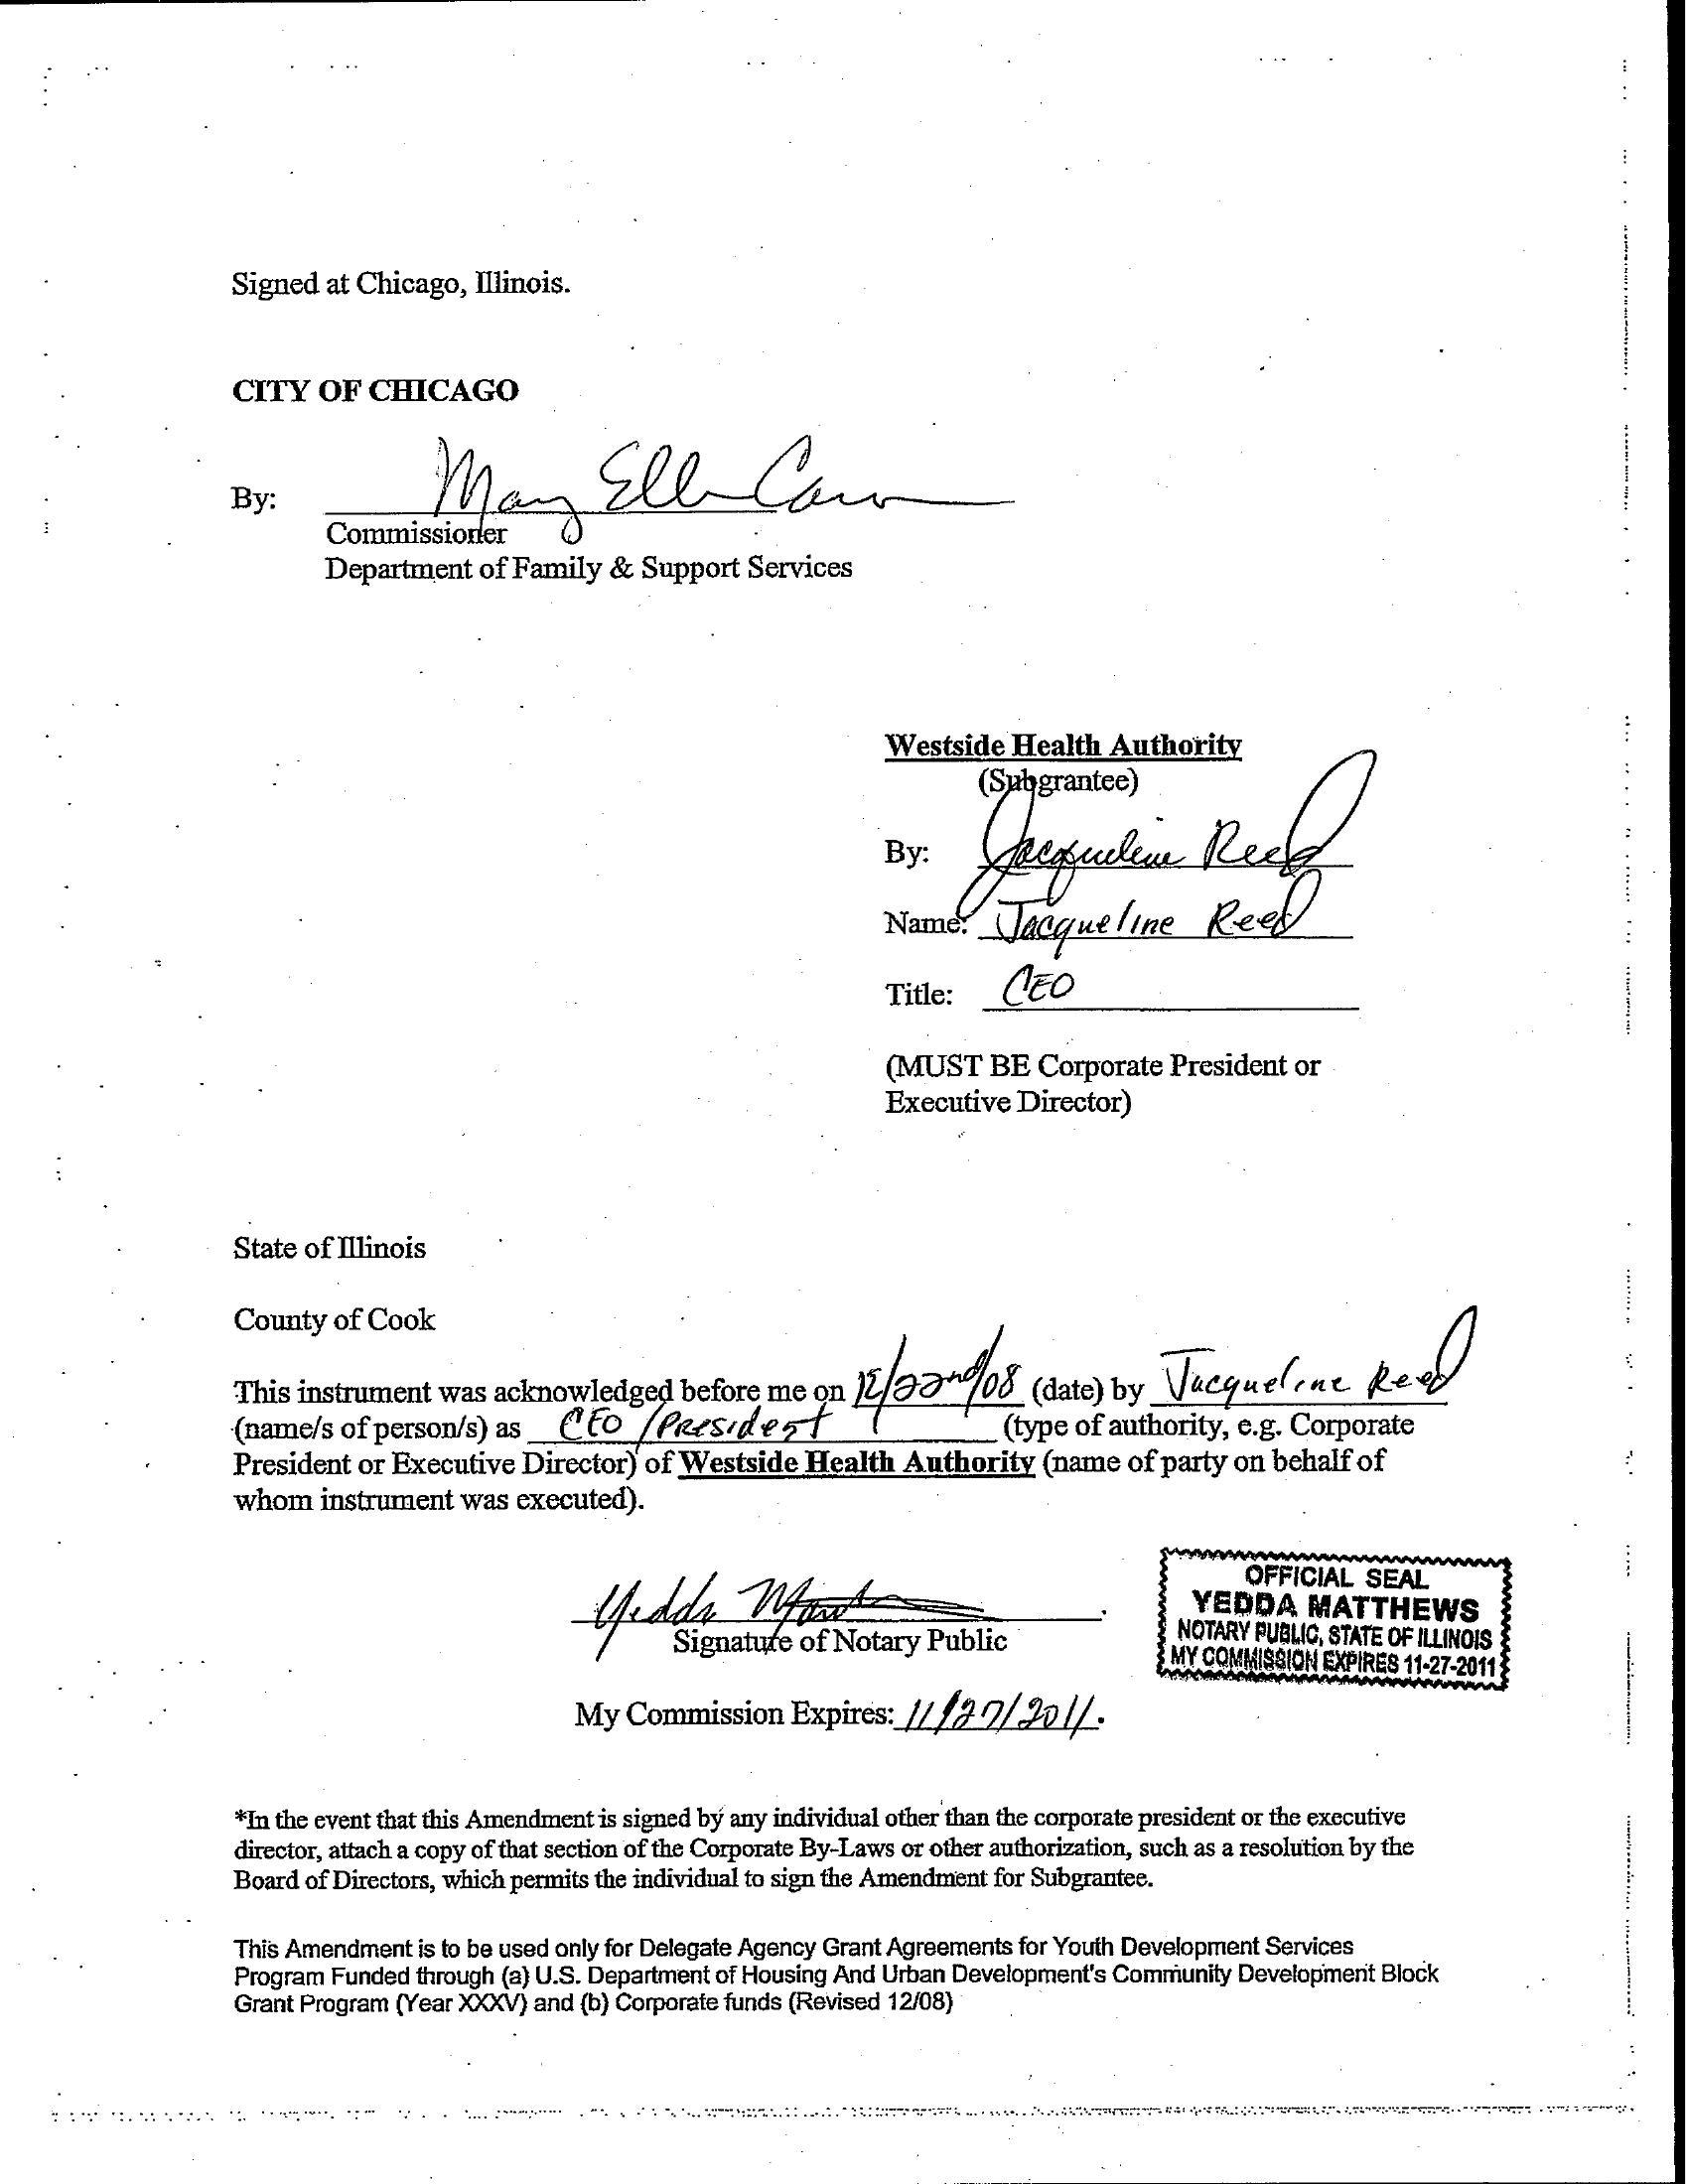 Signed at Chicago, Illinois.
CITY OF CHICAGO
By: Mary Ellen Caron
Commissioner
Department of Family & Support Services
Westside Health Authority
(Subgrantee)
By: Jacqueline Reed
Name: Jacqueline Reed
Title: CEO
(MUST BE Corporate President or
Executive Director)
State of Illinois
County of Cook
This instrument was acknowledged before me on 12/22nd/08 (date) by Jacqueline Reed
(name/s of person/s) as CEO/President (type of authority, e.g. Corporate
President or Executive Director) of Westside Health Authority (name of party on behalf of
whom instrument was executed).
Yedda Matthews
Signature of Notary Public
OFFICIAL SEAL
YEDDA MATTHEWS
NOTARY PUBLIC, STATE OF ILLINOIS
MY COMMISSION EXPIRES 11-27-2011
My Commission Expires: 11/27/2011.
*In the event that this Amendment is signed by any individual other than the corporate president or the executive
director, attach a copy of that section of the Corporate By-Laws or other authorization, such as a resolution by the
Board of Directors, which permits the individual to sign the Amendment for Subgrantee.
This Amendment is to be used only for Delegate Agency Grant Agreements for Youth Development Services
Program Funded through (a) U.S. Department of Housing And Urban Development's Community Development Block
Grant Program (Year XXXV) and (b) Corporate funds (Revised 12/08)